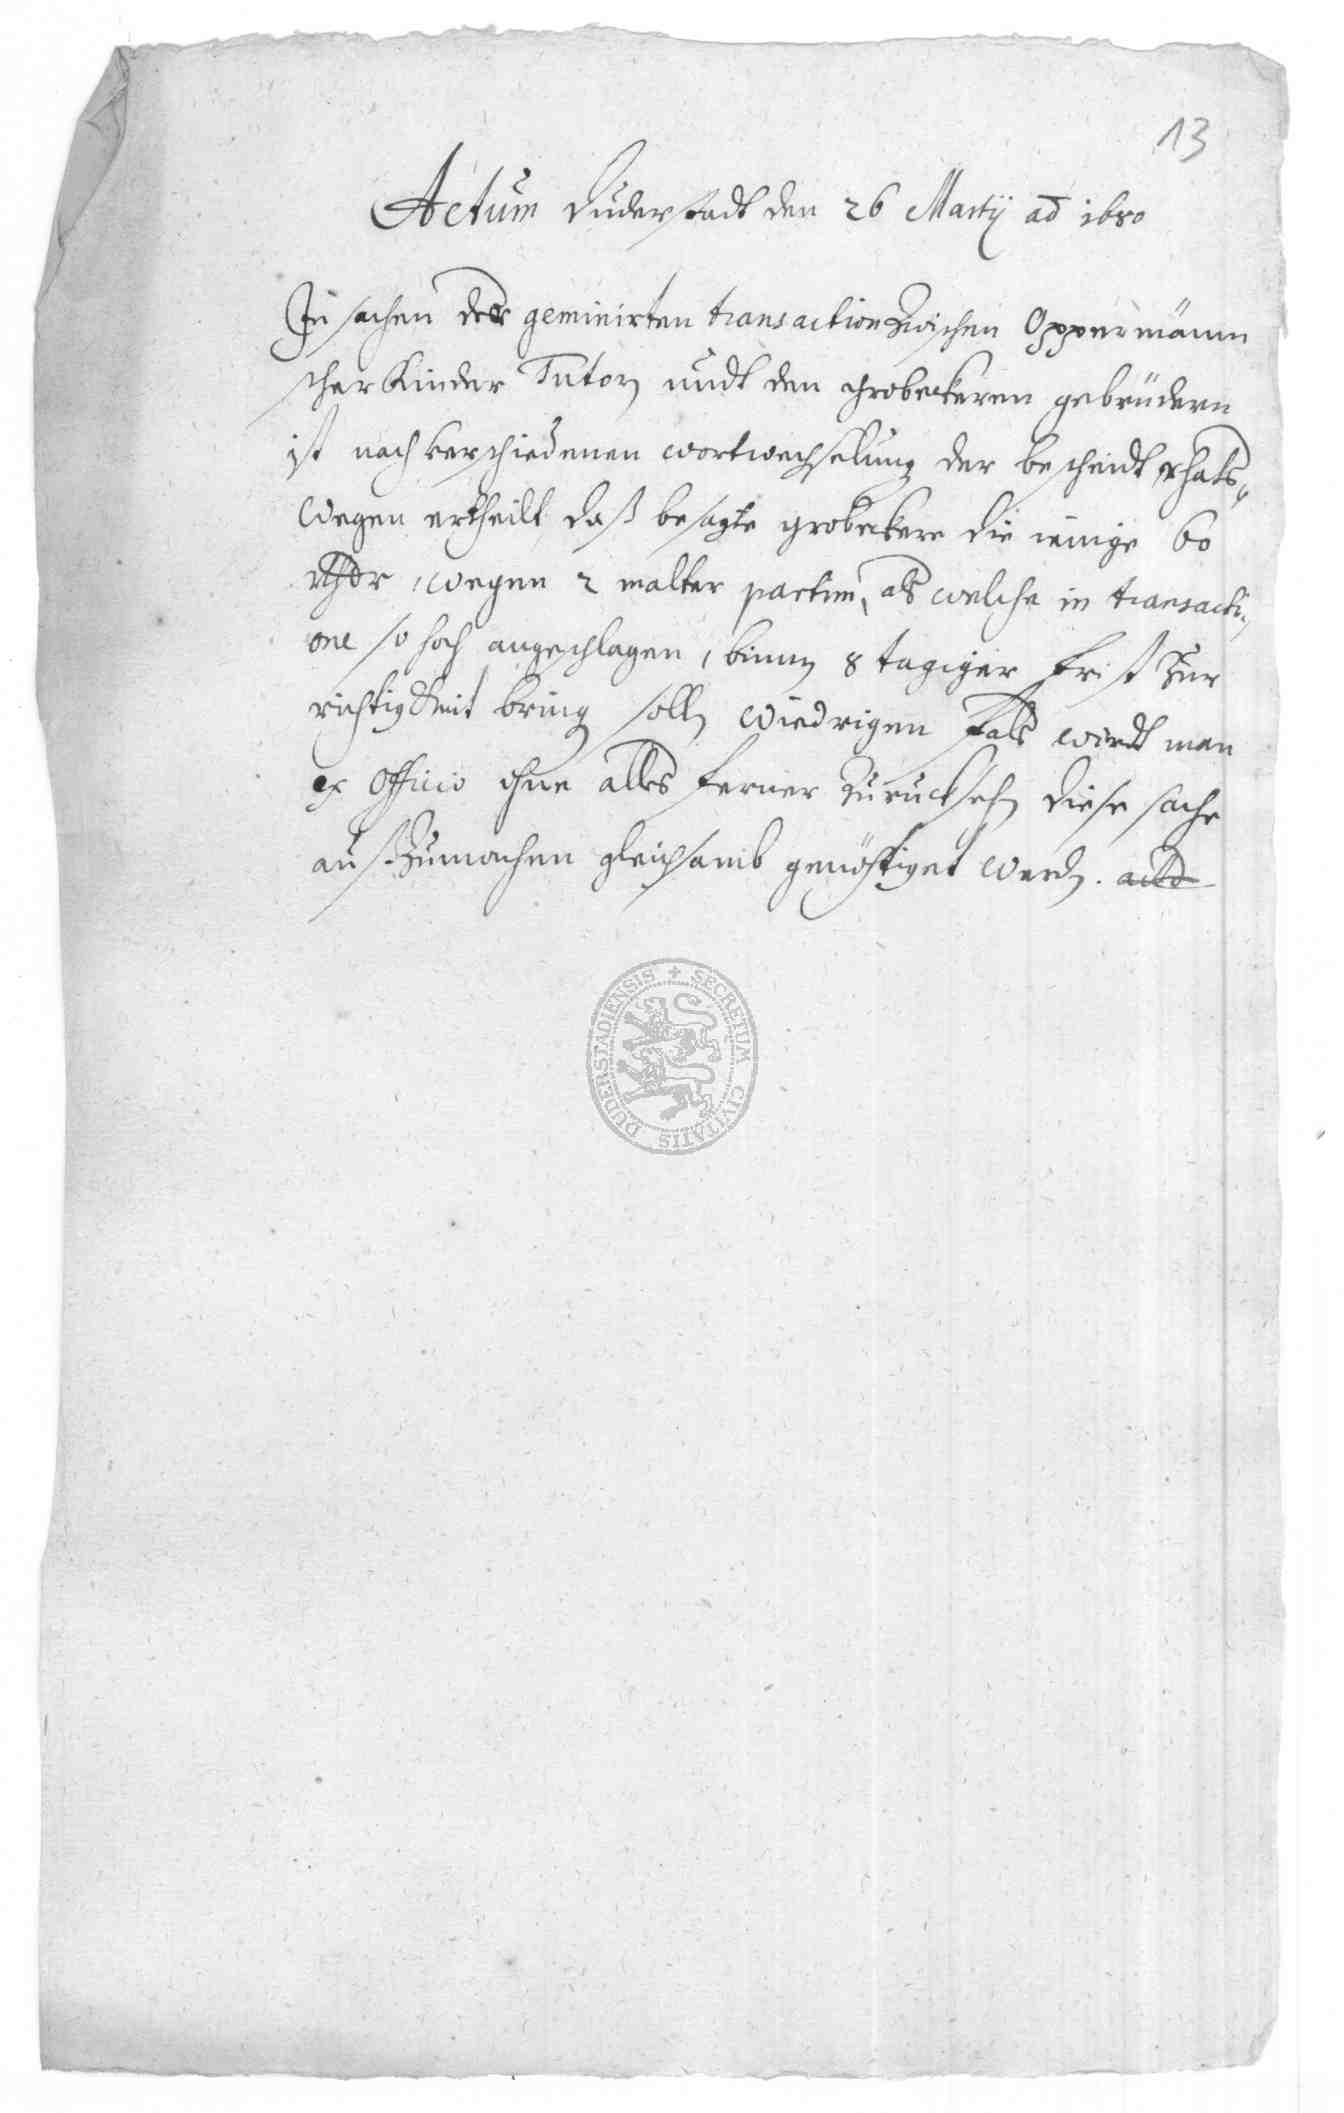 13
Actum Duderstadt den 26 Martij aō 1680
In sachen der geminirten transaction zwischen Oppermänn
scher Kinder Tutorn undt den grobeckeren gebrüdern
ist nach verschiedenen wortwechselung der bescheidt rhats
wegen ertheilt, daß besagte grobeckere die ienige 60
rthlr, wegen 2 malter partim, als welche in transacti
one so hoch angeschlagen, binnen 8 tagiger frist zur
richtigkeit bringen sollen, wiedrigen fals wirdt man
ex officio ohne alles ferner zurucksehen diese sache
außzumachen gleichsamb genöthiget werden.
SECRETUM CIVITATIS DUDERSTADIENSIS